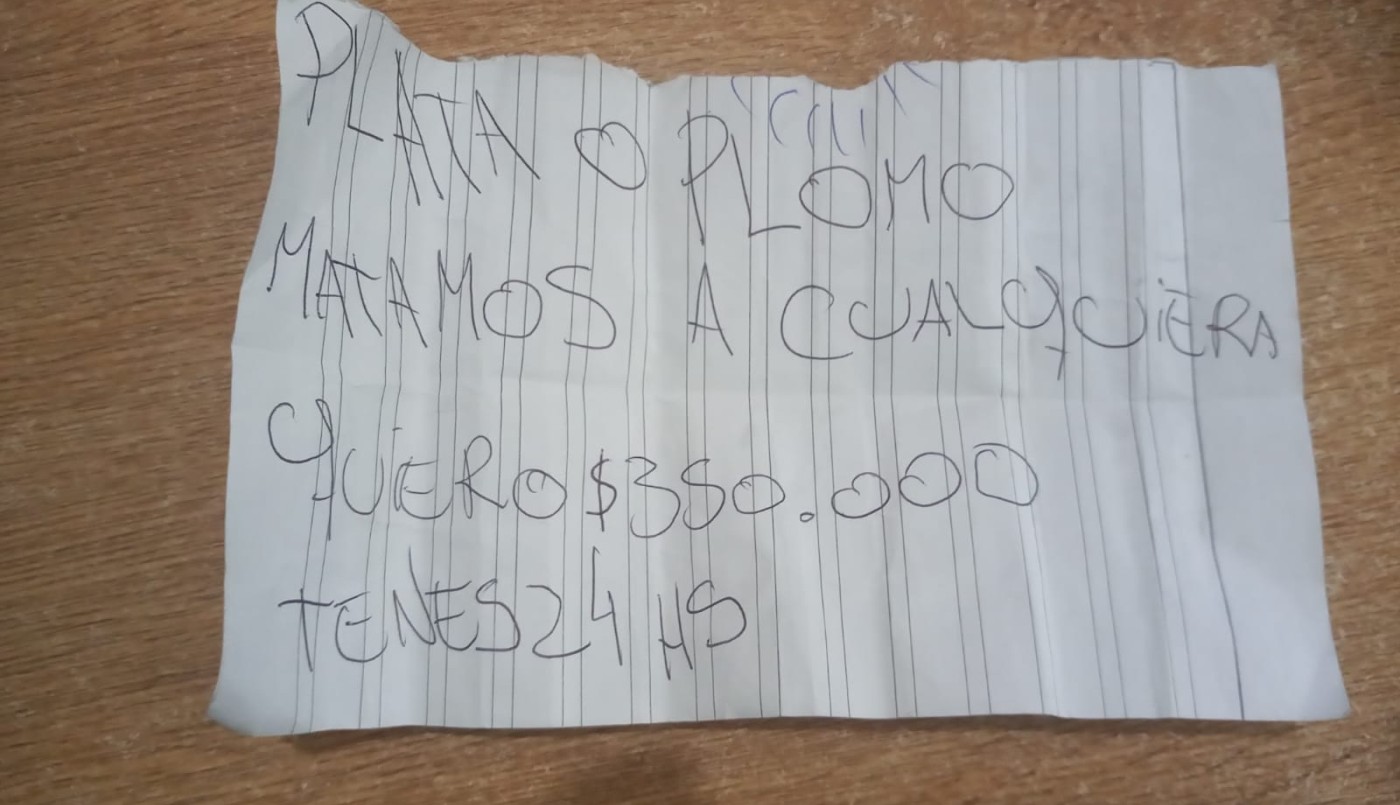 PLATA O PLOMO
MATAMOS A CUALQUIERA
QUIERO $350.000
TENES 24 HS